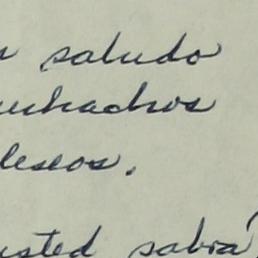 saludo
muchachos
deseos.
usted sabrá